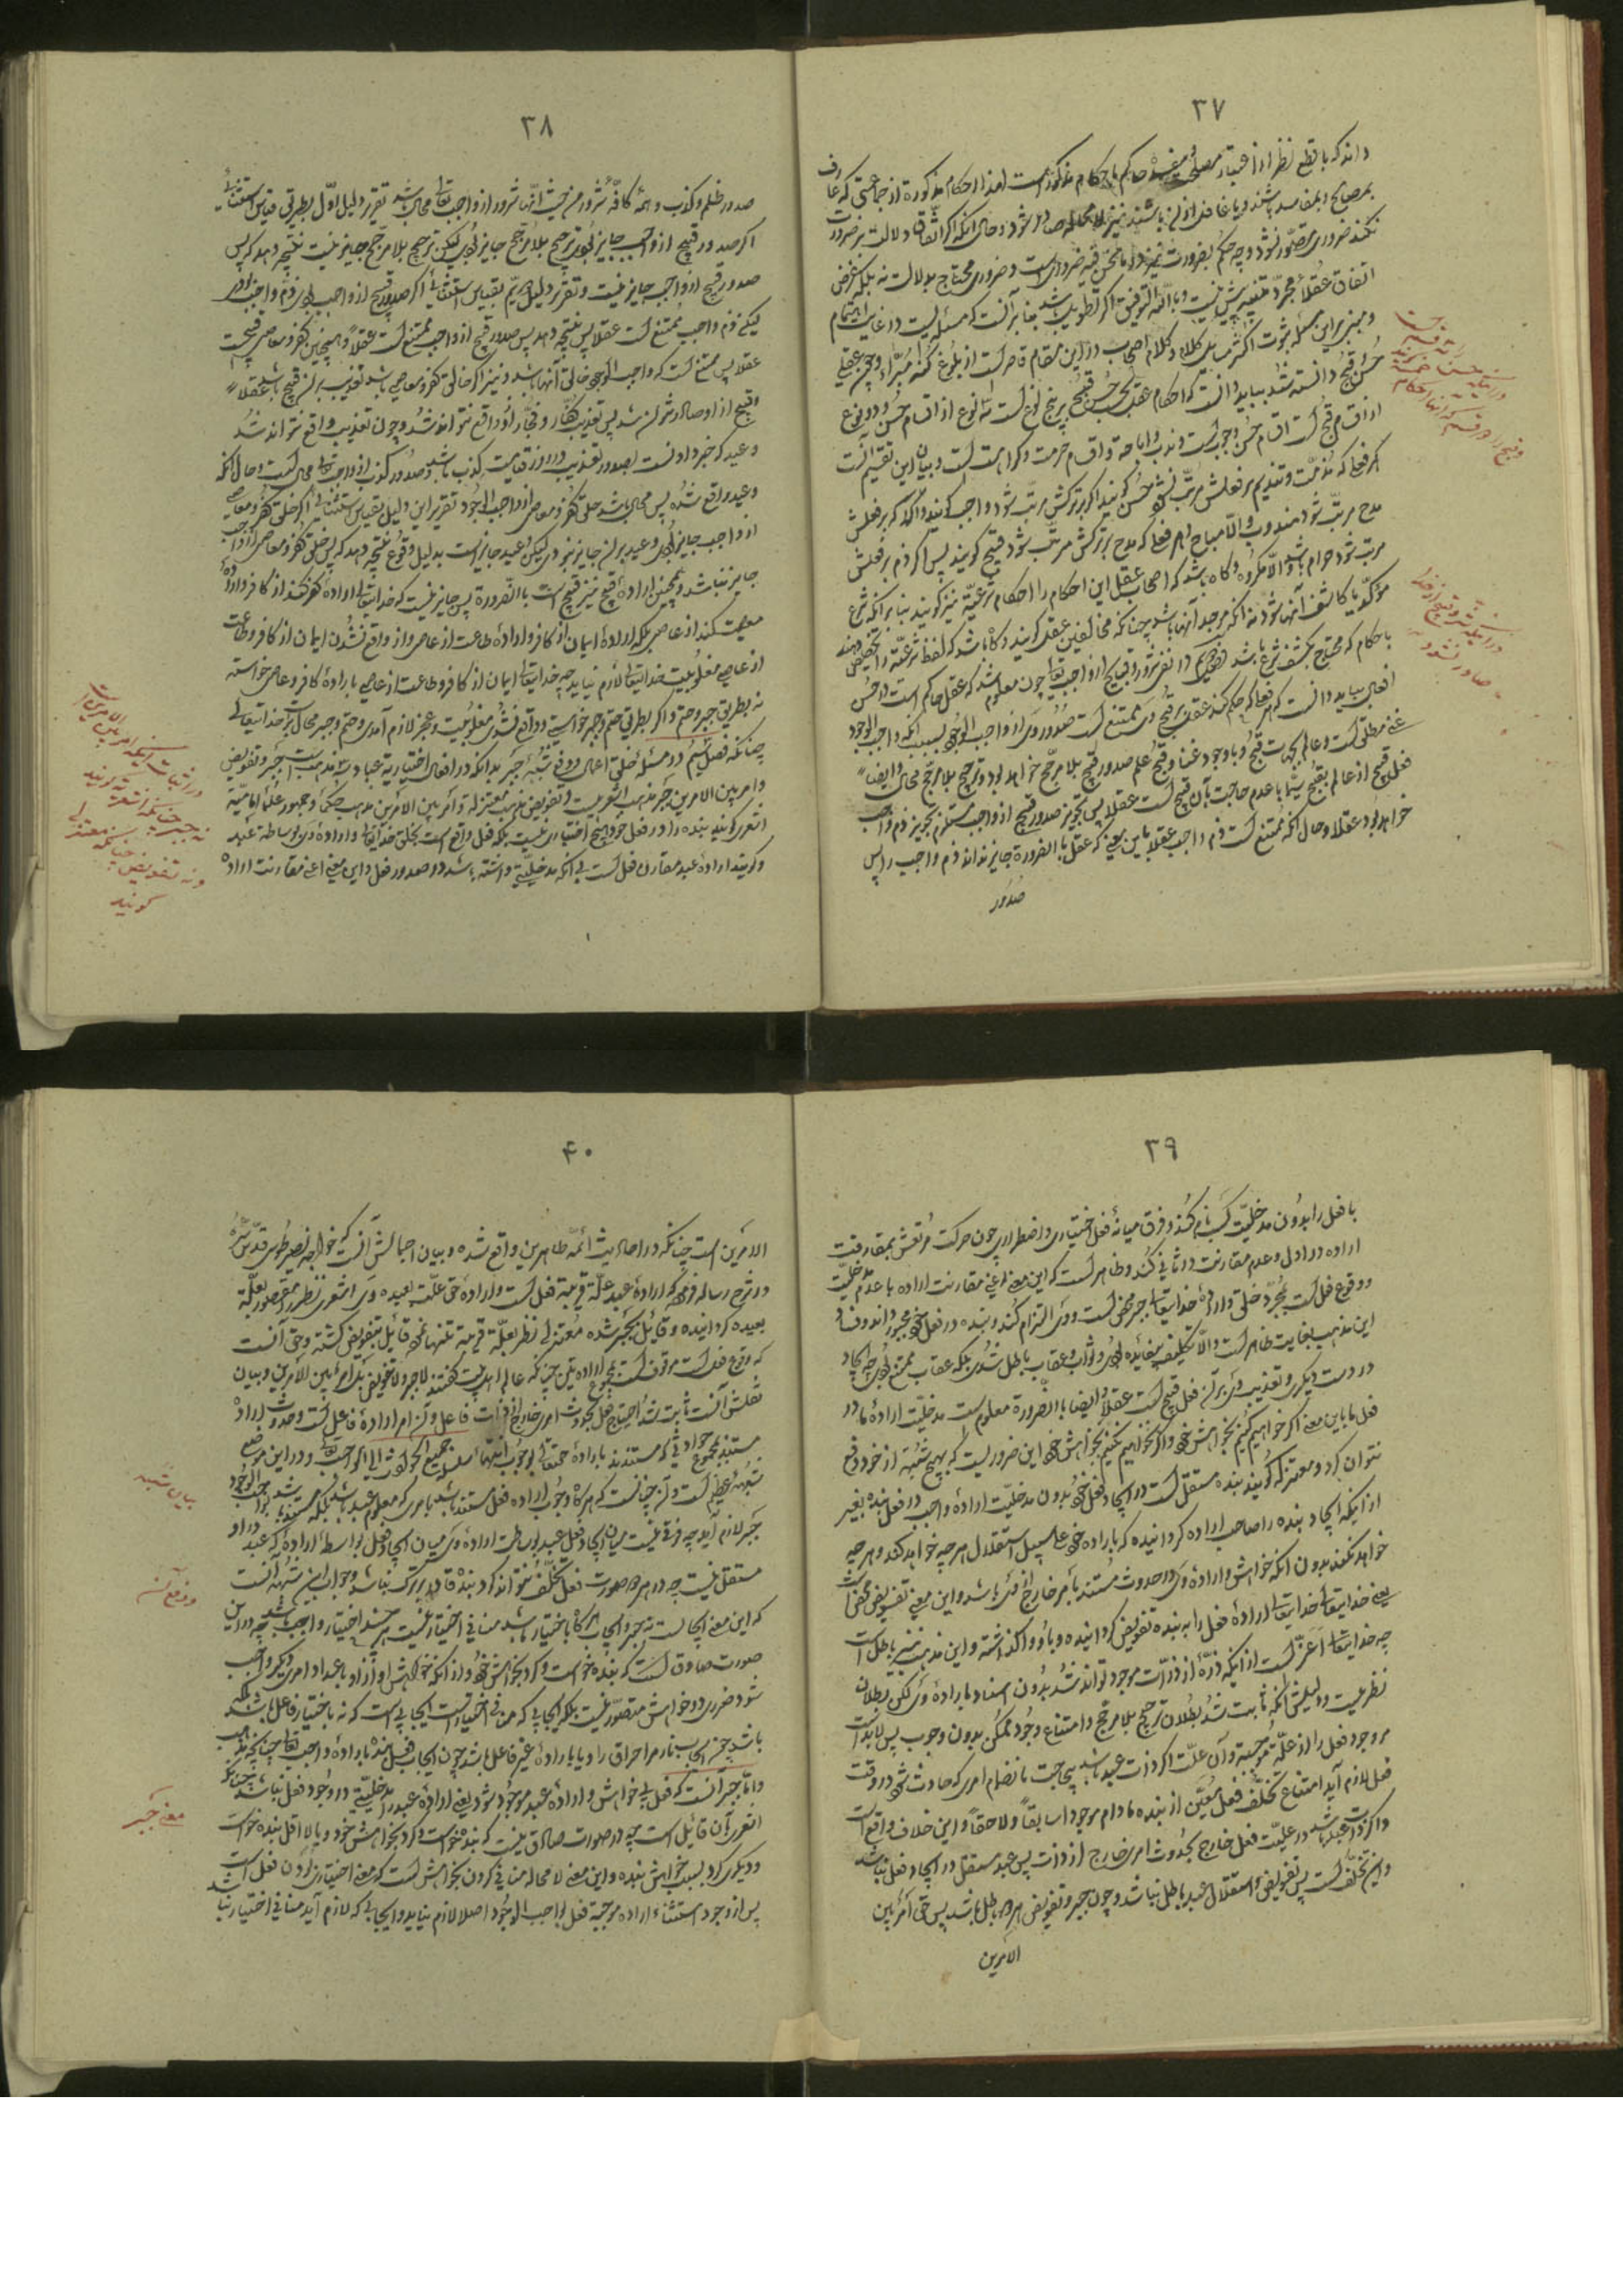 ۳۷
داند که با قطع نظر از اعتبار مصلحة و مفسدة حاکم باحکام مذکوره است لهذا احکام مذکوره از جماعتی که عارف
بمصالح و بمفاسد باشند و یا غافل از آن باشند نیز صادر شود و حال آنکه اگر اتفاق دلالت بر ضرورت
نکند ضروری متصور نشود و چه حکم بضرورت
اتفاق عقلا مجرد تنبیه بیش نیست و بالله التوفیق
و مبنی بر این مسئله ثبوت اکثر مسائل کلام و کلام اصحاب در این مقام قاصر است از بلوغ
حسن و قبح دانسته شد بباید دانست که احکام عقلی بحسب حسن و قبح بر پنج نوع است سه نوع از اقسام حسن و دو نوع
از اقسام قبح است اقسام حسن وجوب است و ندب و اباحة و اقسام قبح حرمت و کراهت است و بیان این تقسیم آنست
که هر فعل که مذمت و تندیم بر فعلش مرتب نشود حسن گویند اگر بر ترکش مرتب شود واجب گویند و اگر بر فعلش
مدح مرتب شود مندوب و الا مباح و هر فعل که مدح بر ترکش مرتب شود قبیح گویند پس اگر ذم بر فعلش
مرتب شود حرام باشد و الا مکروه و گاه باشد که اصحاب عقل این احکام را احکام شرعیه نیز گویند بنا بر آنکه شرع
مؤکد یا کاشف آنها شود نه آنکه موجد آنها باشد چنانکه مخالفین عقل گویند و گاه باشد که لفظ شرعیه را تخصیص دهند
باحکام که محتاج بکشف شرع باشد
افعال بباید دانست که هر فعل که حکم کند عقل بر قبح وی ممتنع است صدور وی از واجب الوجود بسبب آنکه واجب الوجود
غنی مطلق است و عالم بجهات قبح و با وجود غنا و علم صدور قبیح بلا مرجح خواهد بود و ترجیح بلا مرجح محال و ایضا
فعل قبیح از عالم بقبح سیما با عدم حاجت بآن قبیح است عقلا پس تجویز صدور قبیح از واجب مستلزم تجویز ذم واجب
خواهد بود عقلا و حال آنکه ممتنع است ذم واجب عقلا باین معنی که عقل بالضرورة جایز نداند ذم واجب را پس
صدور
۳۸
صدور ظلم و کذب و همه کافه شرور من حیث انها شرور از واجب تعالی محال باشد تقریر دلیل اول بطریق قیاس استثنائی
اگر صدور قبیح از واجب جایز بودی ترجیح بلا مرجح جایز بودی لیکن ترجیح بلا مرجح جایز نیست نتیجه دهد که پس
صدور قبیح از واجب جایز نیست و تقریر دلیل دویم بقیاس استثنائی اگر صدور قبیح از واجب
لیکن ذم واجب ممتنع است عقلا پس نتیجه دهد پس صدور قبیح از واجب ممتنع است عقلا و همچنین کفر و معاصی قبیحست
عقلا پس ممتنع است که واجب الوجود خالق آنها باشد و نیز اگر خالق کفر و معاصی باشد تعذیب بر آن قبیح باشد عقلا
و قبیح از او صادر نتواند شد پس تعذیب کفار و فجار از او واقع نتواند شد و چون تعذیب واقع نتواند شد
وعید که خبر دادنست بصدور تعذیب در روز قیامت کذب باشد و صدور کذب از واجب تعالی محال است و حال آنکه
وعید واقع شده پس محال باشد خلق کفر و معاصی از واجب الوجود تقریر این دلیل بقیاس استثنائی اگر خلق کفر و معاصی
از واجب جایز بودی وعید بر آن جایز نبودی لیکن وعید جایز است بدلیل وقوع نتیجه دهد که پس خلق کفر و معاصی از واجب
جایز نباشد و همچنین ارادۀ قبیح نیز قبیح است بالضرورة پس جایز نیست که خدایتعالی ارادۀ کفر کند از کافر و ارادۀ
معصیت کند از عاصی بلکه ارادۀ ایمان از کافر و ارادۀ طاعت از عاصی و از واقع نشدن ایمان از کافر و طاعت
از عاصی مغلوبیت خدایتعالی لازم نیاید چه خدایتعالی ایمان از کافر و طاعت از عاصی بارادۀ کافر و عاصی خواسته
نه بطریق جبر و حتم و اگر بطریق حتم و جبر خواستی و واقع نشدی مغلوبیت و عجز لازم آمدی و حتم و جبر محال بر خدایتعالی
چنانکه فصل سیم در مسئله خلق اعمال و دفع شبه جبر بدانکه در افعال اختیاریه عباد سه مذهب است جبر و تفویض
و امر بین الامرین جبر مذهب اشعریست و تفویض مذهب معتزله و امر بین الامرین مذهب حکما و جمهور علمای امامیه
اشعری گوید بنده را در فعل خود هیچ اختیاری نیست بلکه فعل واقع است بخلق خدایتعالی و ارادۀ وی بواسطۀ عبد
و گوید ارادۀ عبد مقارن فعل است بی آنکه مدخلیتی داشته باشد در صدور فعل و این معنی اعنی مقارنت ارادۀ
در اثبات اینکه امر بین الامرین است
نه جبر چنانکه اشعریه گویند
و نه تفویض چنانکه معتزلی
گویند
۳۹
با فعل را بدون مدخلیت کسب نام کند و فرق میانۀ فعل اختیاری و اضطراری چون حرکت مرتعش بمقارنت
اراده در اول و عدم مقارنت در ثانی کند و ظاهر است که این معنی اعنی مقارنت اراده با عدم مدخلیت
و وقوع فعل بمجرد خلق و ارادۀ خدایتعالی جبر محض است و وی التزام کند و بنده در فعل خود مجبور داند و فساد
این مذهب بغایت ظاهر است و الا تکلیف بیفایده بودی و ثواب و عقاب باطل شدی بلکه عقاب ممتنع بودی چه ایجاد
در دست دیگری و تعذیب دیگری بر آن فعل قبیح است عقلا و ایضا بالضرورة معلوم است مدخلیت ارادۀ ما در
فعل ما باین معنی که اگر خواهیم کنیم بخواهش خود و اگر نخواهیم نکنیم بخواهش خود این ضروریست که بهیچ شبهه از خود دفع
نتوان کرد و معتزله گویند بنده مستقل است در ایجاد فعل خود بدون مدخلیت ارادۀ واجب در فعل بنده بغیر
از اینکه ایجاد بنده را صاحب اراده گردانیده که بارادۀ خود علی سبیل استقلال هر چه خواهد کند و هر چه
خواهد نکند بدون آنکه خواهش و ارادۀ وی در حدوث مستند بامر خارج از وی باشد و این معنی تفویض محض است
یعنی خدایتعالی ارادۀ فعل را به بنده تفویض گردانیده و باو واگذاشته و این مذهب نیز باطل است
چه خدایتعالی اعز است از اینکه ذرۀ از ذرات موجود تواند شد بدون استناد بارادۀ وی لکن بطلان
نظریست و دلیلش آنکه ثابت شد بطلان ترجیح بلا مرجح و امتناع وجود ممکن بدون وجوب پس لابد است
مر وجود فعل را از علة موجبه و آن علت اگر ذات عبد باشد بیحاجت بانضمام امری که حادث شود در وقت
فعل لازم آید امتناع تخلف فعل معین از بنده مادام موجودا سابقا و لاحقا و این خلاف واقع است
و اگر ذات عبد باشد در علیت فعل خارج بحدوث امری خارج از ذات پس عبد مستقل در ایجاد فعل نباشد
و این تخلف است پس تفویض و استقلال عبد باطل باشد و چون جبر و تفویض هر دو باطل باشد پس حق امر بین
الامرین
۴۰
الامرین است چنانکه در احادیث ائمه طاهرین واقع شده و بیان اجمالش آنست که خواجه نصیر طوسی قدس سره
در شرح رساله فرموده که ارادۀ عبد علة قریبه فعل است و ارادۀ حق علت بعیده وی اشعری نظر را مقصور بعلة
بعیده گردانیده و قائل بجبر شده معتزلی نظر بعلة قریبه تنها نموده قائل بتفویض گشته و حق آنست
که وقوع فعل موقوف است بمجموع ارادتین چنانکه عالم اهل بیت گفتند لا جبر و لا تفویض بل امر بین الامرین و بیان
تفصیلش آنست ثابت شد احتیاج فعل بحدوث امری خارج از ذات فاعل و آن امر ارادۀ فاعل است و حدوث اراده
مستند بمجموع حوادثی که مستندند بارادۀ حقتعالی لوجوب انتهاء سلسلة جمیع الحوادث الی الواجب تعالی و در این موضع
شبهه عظیم است و آن چنانست که هرگاه وجوب اراده فعل مستند باشد بامری
جبر لازم آید چه فرق نیست میان ایجاد فعل عبد بیوساطت ارادۀ وی و میان ایجاد فعل بواسطۀ ارادۀ که عبد در او
مستقل نیست چه در هر دو صورت فعل تخلف نتواند کرد و بنده قادر بر ترک نباشد و جواب این شبهه آنست
که این معنی ایجاب است نه جبر و ایجاب هرگاه باختیار باشد منافی اختیار نیست هر چند اختیار واجب باشد چه در این
صورت صادق است که بنده خواست و کرد بخواهش خود و از آنکه خواهش او از او باعداد امری دیگر واجب
شود ضرری در خواهش متصور نیست بلکه ایجابی که منافی اختیار است ایجابی است که نه باختیار فاعل باشد بلکه
باشد چون ایجاب نار مر احراق را و یا بارادۀ غیر فاعل باشد چون ایجاب فعل بنده بارادۀ واجب تعالی چنانکه مذهب
و اما جبر آنست که فعل بی خواهش و ارادۀ عبد موجود شود یعنی ارادۀ عبد را مدخلیتی در وجود فعل نباشد چنانکه
اشعری بآن قائل است چه در صورت صادق نیست که بنده خواست و کرد بخواهش خود و یا لااقل بنده خواست
و دیگری کرد بسبب خواهش بنده و این معنی لا محاله منافی کردن بخواهش است که معنی اختیاری بودن فعل است
پس از وجود استثناء اراده موجبۀ فعل بواجب الوجود اصلا لازم نیاید و ایجابی که لازم آید منافی اختیار نباشد
بیان شبهه
و دفع آن
معنی جبر